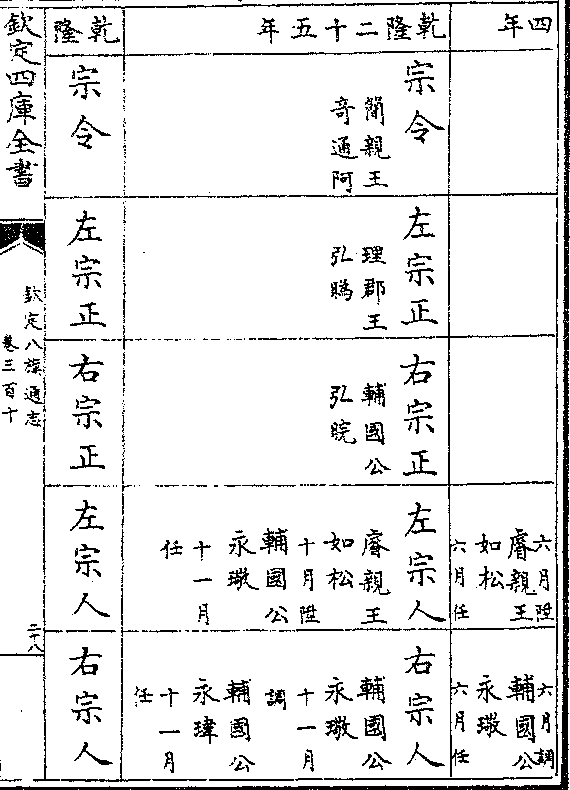 四年
六月陞
睿親王
如松
六月任
六月調
輔國公
永璥
六月任
乾隆二十五年
宗令
簡親王
奇通阿
左宗正
理郡王
弘㬙
右宗正
輔國公
弘晥
左宗人
睿親王
如松
十月陞
輔國公
永璥
十一月
任
右宗人
輔國公
永璥
十一月
調
輔國公
永瑋
十一月
任
乾隆
宗令
左宗正
右宗正
左宗人
右宗人
欽定四庫全書
欽定八旗通志
卷三百十
二十八